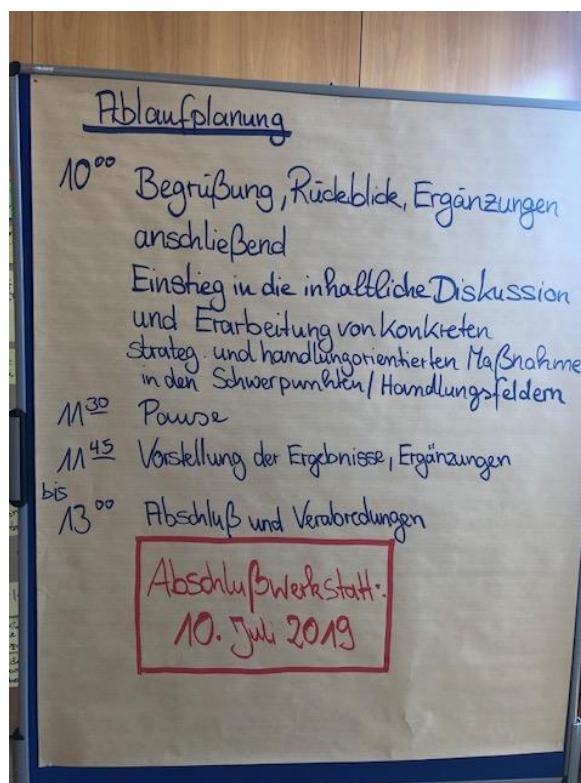 Ablaufplanung
10⁰⁰ Begrüßung, Rückblick, Ergänzungen
anschließend
Einstieg in die inhaltliche Diskussion
und Erarbeitung von konkreten
strateg. und handlungorientierten Maßnahme
in den Schwerpunkten/Handlungsfeldern
11³⁰ Pause
11⁴⁵ Vorstellung der Ergebnisse, Ergänzungen
bis
13⁰⁰ Abschluß und Verabredungen
Abschlußwerkstatt:
10. Juli 2019